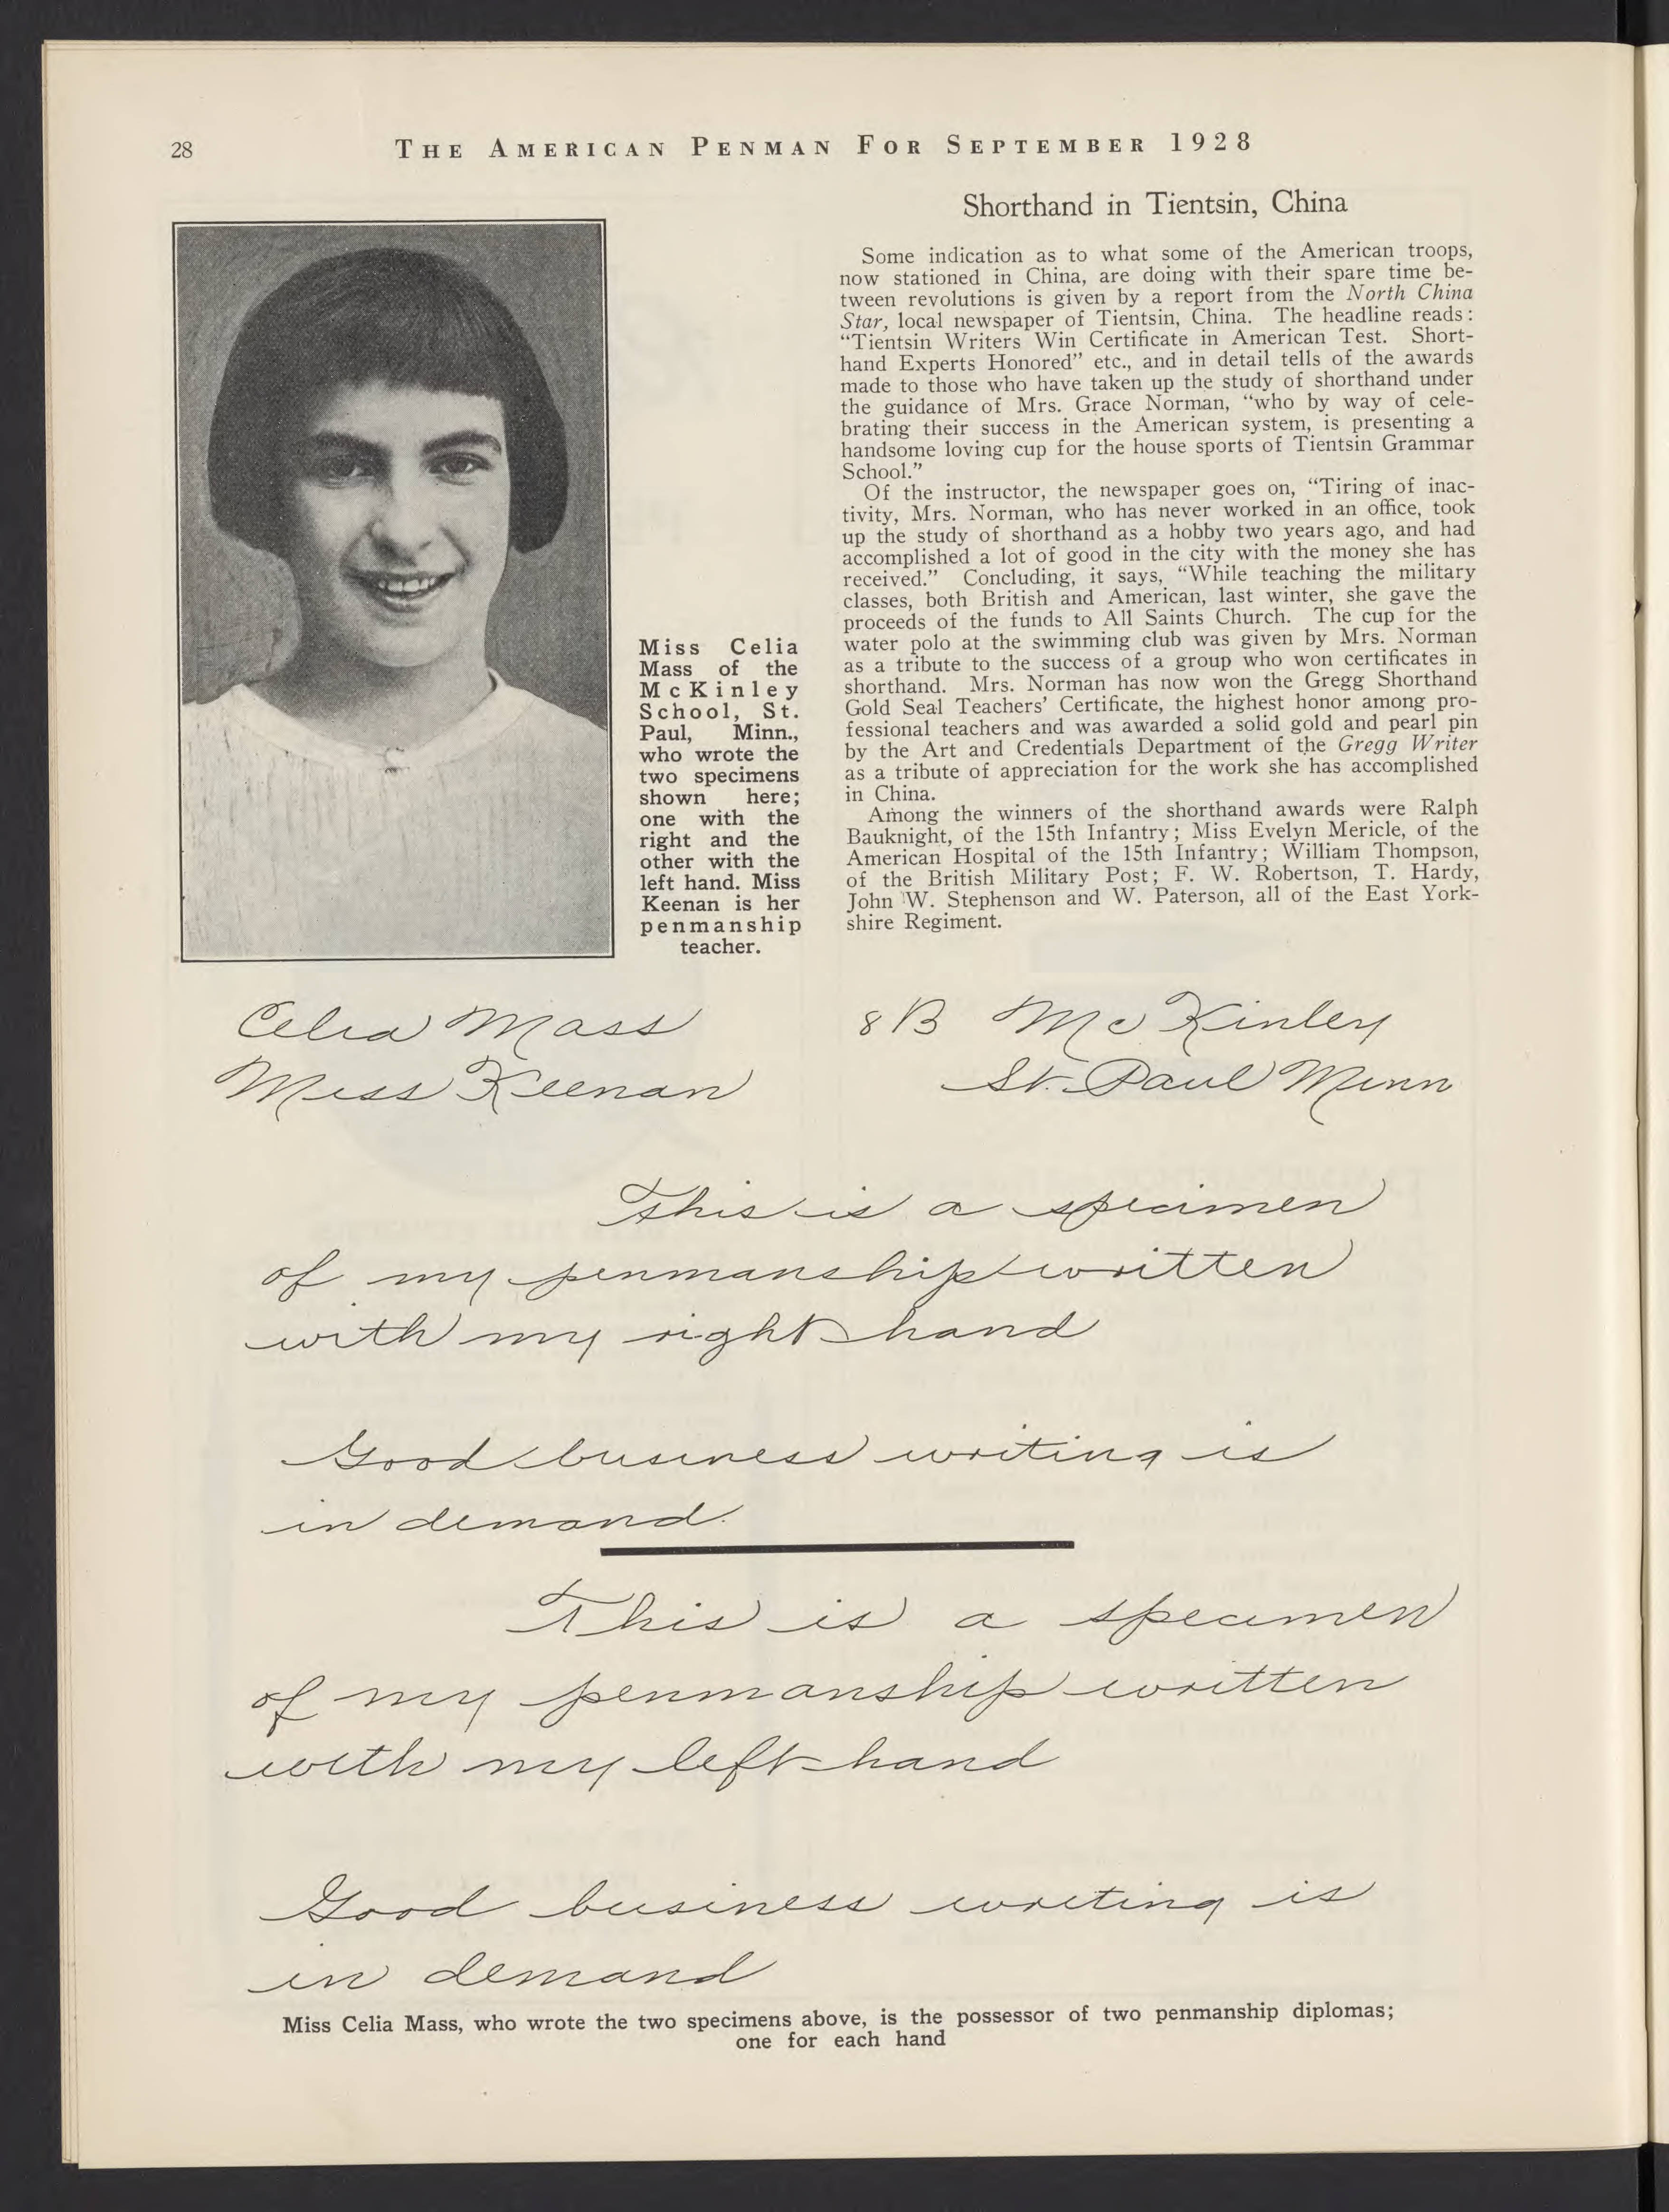 28
THE AMERICAN PENMAN FOR SEPTEMBER 1928
Miss Celia
Mass of the
McKinley
School, St.
Paul, Minn.,
who wrote the
two specimens
shown here;
one with the
right and the
other with the
left hand. Miss
Keenan is her
penmanship
teacher.
Shorthand in Tientsin, China
Some indication as to what some of the American troops,
now stationed in China, are doing with their spare time be-
tween revolutions is given by a report from the North China
Star, local newspaper of Tientsin, China. The headline reads:
“Tientsin Writers Win Certificate in American Test. Short-
hand Experts Honored” etc., and in detail tells of the awards
made to those who have taken up the study of shorthand under
the guidance of Mrs. Grace Norman, “who by way of cele-
brating their success in the American system, is presenting a
handsome loving cup for the house sports of Tientsin Grammar
School.”
Of the instructor, the newspaper goes on, “Tiring of inac-
tivity, Mrs. Norman, who has never worked in an office, took
up the study of shorthand as a hobby two years ago, and had
accomplished a lot of good in the city with the money she has
received.” Concluding, it says, “While teaching the military
classes, both British and American, last winter, she gave the
proceeds of the funds to All Saints Church. The cup for the
water polo at the swimming club was given by Mrs. Norman
as a tribute to the success of a group who won certificates in
shorthand. Mrs. Norman has now won the Gregg Shorthand
Gold Seal Teachers’ Certificate, the highest honor among pro-
fessional teachers and was awarded a solid gold and pearl pin
by the Art and Credentials Department of the Gregg Writer
as a tribute of appreciation for the work she has accomplished
in China.
Among the winners of the shorthand awards were Ralph
Bauknight, of the 15th Infantry; Miss Evelyn Mericle, of the
American Hospital of the 15th Infantry; William Thompson,
of the British Military Post; F. W. Robertson, T. Hardy,
John W. Stephenson and W. Paterson, all of the East York-
shire Regiment.
Celia Mass 8B McKinley
Miss Keenan St. Paul Minn
This is a specimen
of my penmanship written
with my right hand
Good business writing is
in demand.
This is a specimen
of my penmanship written
with my left hand
Good business writing is
in demand
Miss Celia Mass, who wrote the two specimens above, is the possessor of two penmanship diplomas;
one for each hand